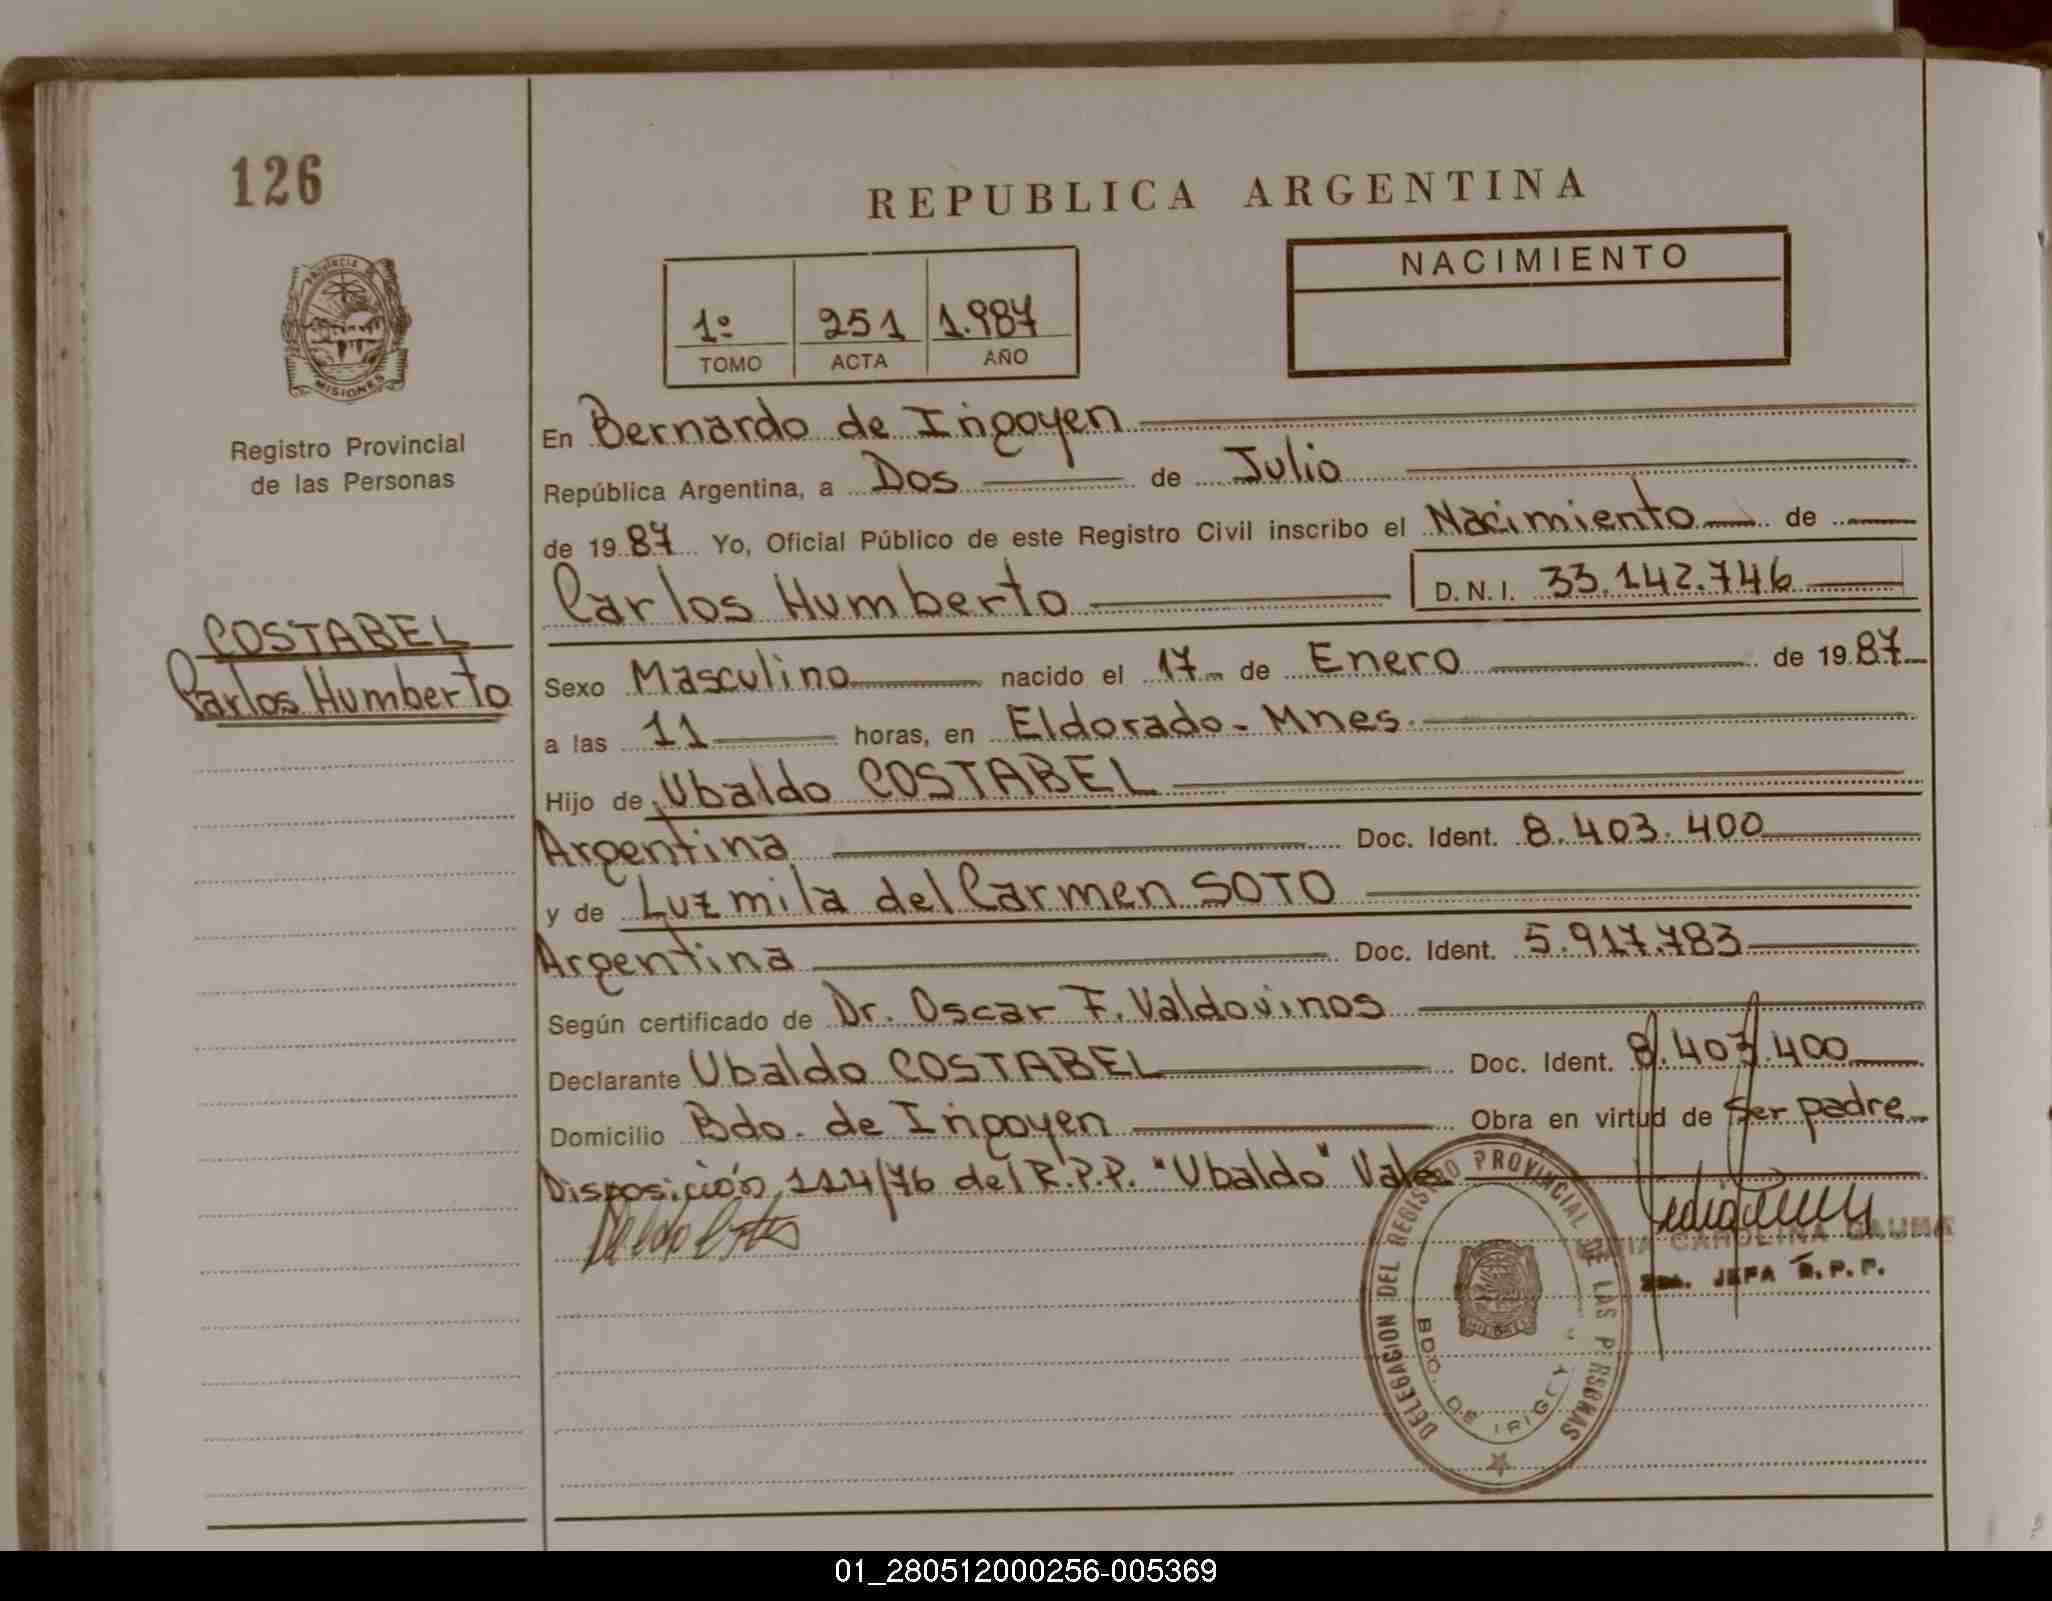 126
REPUBLICA ARGENTINA
NACIMIENTO
1º 251 1.987
TOMO ACTA AÑO
MISIONES
Registro Provincial
de las Personas
COSTABEL
Carlos Humberto
En Bernardo de Irigoyen
República Argentina, a Dos de Julio
de 1987 Yo, Oficial Público de este Registro Civil inscribo el Nacimiento de
Carlos Humberto D.N.I. 33.142.746
Sexo Masculino nacido el 17 de Enero de 1987
a las 11 horas, en Eldorado - Mnes.
Hijo de Ubaldo COSTABEL
Argentina Doc. Ident. 8.403.400
y de Luzmila del Carmen SOTO
Argentina Doc. Ident. 5.917.783
Según certificado de Dr. Oscar F. Valdovinos
Declarante Ubaldo COSTABEL Doc. Ident. 8.403.400
Domicilio Bdo. de Irigoyen Obra en virtud de ser padre
Disposición 114/76 del R.P.P. "Ubaldo" Vale
DELEGACION DEL REGISTRO PROVINCIAL DE LAS PERSONAS
BDO. DE IRIGOY
CAROLINA
JEFA R.P.P.
01_280512000256-005369